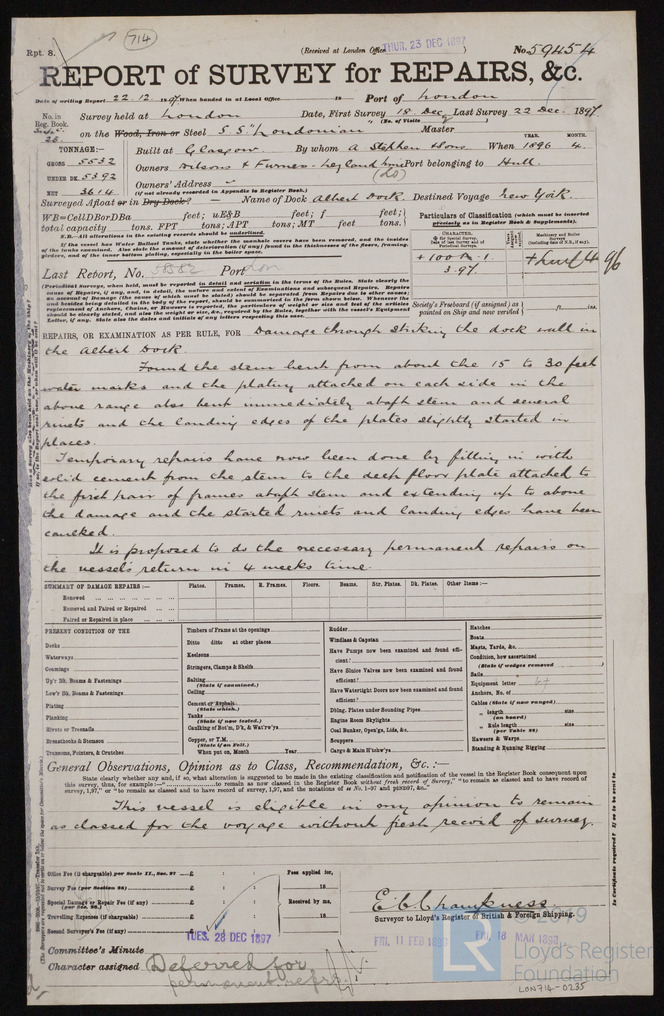 Rpt. 8.
714
(Received at London Office THUR. 23 DEC 1897)
No. 59454
REPORT of SURVEY for REPAIRS, &c.
Date of writing Report 22.12.1897 When handed in at Local Office 18 Port of London
No. in Reg. Book. Survey held at London Date, First Survey 18 Dec Last Survey 22 Dec. 1897
(No. of Visits )
on the Wood, Iron or Steel S.S. "Londonian" Master
TONNAGE:— Built at Glasgow By whom A Stephen & Sons When 1896 4.
YEAR. MONTH.
GROSS 5532
UNDER DK. 5392
NET 3614
Owners Wilsons & Furness-Leyland Line Port belonging to Hull.
(Ld)
Owners' Address
(if not already recorded in Appendix to Register Book.)
Surveyed Afloat or in Dry Dock? Name of Dock Albert Dock. Destined Voyage New York.
WB=CellDBorDBa feet; uE&B feet; f feet;
total capacity tons. FPT tons; APT tons; MT feet tons.
N.B.—All alterations in the existing records should be underlined.
If the vessel has Water Ballast Tanks, state whether the manhole covers have been removed, and the insides of the tanks examined. Also state the amount of deterioration (if any) found in the thicknesses of the floors, framing, girders, and of the inner bottom plating, especially in the boiler space.
Particulars of Classification (which must be inserted precisely as in Register Book & Supplements).
+ 100 A.1.
3.97
Last Report, No. 58882 Port Lon
Society's Freeboard (if assigned) as painted on Ship and now verified ft. ins.
REPAIRS, OR EXAMINATION AS PER RULE, FOR Damage through striking the dock wall in
the Albert Dock.
Found the stem bent from about the 15 to 30 feet
water marks and the plating attached on each side in the
above range also bent immediately abaft stem and several
rivets and the landing edges of the plates slightly started in
places.
Temporary repairs have now been done by filling in with
solid cement from the stem to the deep floor plate attached to
the first pair of frames abaft stem and extending up to above
the damage and the started rivets and landing edges have been
caulked.
It is proposed to do the necessary permanent repairs on
the vessel's return in 4 weeks time.
SUMMARY OF DAMAGE REPAIRS:— Plates. Frames. R. Frames. Floors. Beams. Str. Plates. Dk. Plates. Other Items:—
Renewed
Removed and Faired or Repaired
Faired or Repaired in place
PRESENT CONDITION OF THE
Decks
Waterways
Coamings
Up'r Dk. Beams & Fastenings
Low'r Dk. Beams & Fastenings
Plating
Planking
Rivets or Treenails
Breasthooks & Stemson
Transoms, Pointers, & Crutches
Timbers of Frame at the openings
Ditto ditto at other places
Keelsons
Stringers, Clamps & Shelfs
Salting
(State if examined.)
Ceiling
Cement or Asphalt
(State which.)
Tanks
(State if now tested.)
Caulking of Bot'm, D'k, & Wat'rw'ys
Copper, or Y.M.
(State if on Felt.)
When put on, Month Year
Rudder
Windlass & Capstan
Have Pumps now been examined and found efficient?
Have Sluice Valves now been examined and found efficient?
Have Watertight Doors now been examined and found efficient?
Dblng. Plates under Sounding Pipes
Engine Room Skylights
Coal Bunker, Open'gs, Lids, &c.
Scuppers
Cargo & Main H'tchw'ys
Hatches
Boats
Masts, Yards, &c.
Condition, how ascertained
(State if wedges removed )
Sails
Equipment letter
Anchors, No. of
Cables (State if now ranged)
" length size
(on board)
" Rule length size
(per Table 22)
Hawsers & Warps
Standing & Running Rigging
General Observations, Opinion as to Class, Recommendation, &c.:—
State clearly whether any and, if so, what alteration is suggested to be made in the existing classification and notification of the vessel in the Register Book consequent upon
this survey, thus, for example:—"to remain as now classed in the Register Book without fresh record of Survey," "to remain as classed and to have record of
This vessel is eligible in my opinion to remain
as classed for the voyage without fresh record of survey.
Office Fee (if chargeable) per Scale II., Sec. 27 £ : : Fees applied for,
Survey Fee (per Section 28) £ : : 18
Special Damage or Repair Fee (if any) (per Sec. 28.) £ : : Received by me,
Travelling Expenses (if chargeable) £ : : 18
Second Surveyor's Fee (if any) £ : :
E C Champness
Surveyor to Lloyd's Register of British & Foreign Shipping.
TUES. 28 DEC 1897
FRI. 11 FEB 1898
FRI. 18 MAR 1898
Committee's Minute
Character assigned Deferred for
permanent repairs
© 2019
LR
Lloyd's Register
Foundation
LON714-0235